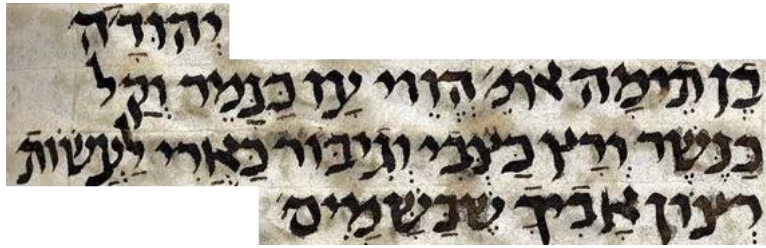 יְהוּדָה
בֶּן תֵּימָה אוֹמֵ' הֱווֵי עָז כַּנָּמֵר וְקַל
כַּנֶּשֶׁר וְרָץ כַּצְּבִי וְגִיבּוֹר כָּאֲרִי לַעֲשׂוֹת
רְצוֹן אָבִיךָ שֶׁבַּשָּׁמַיִם